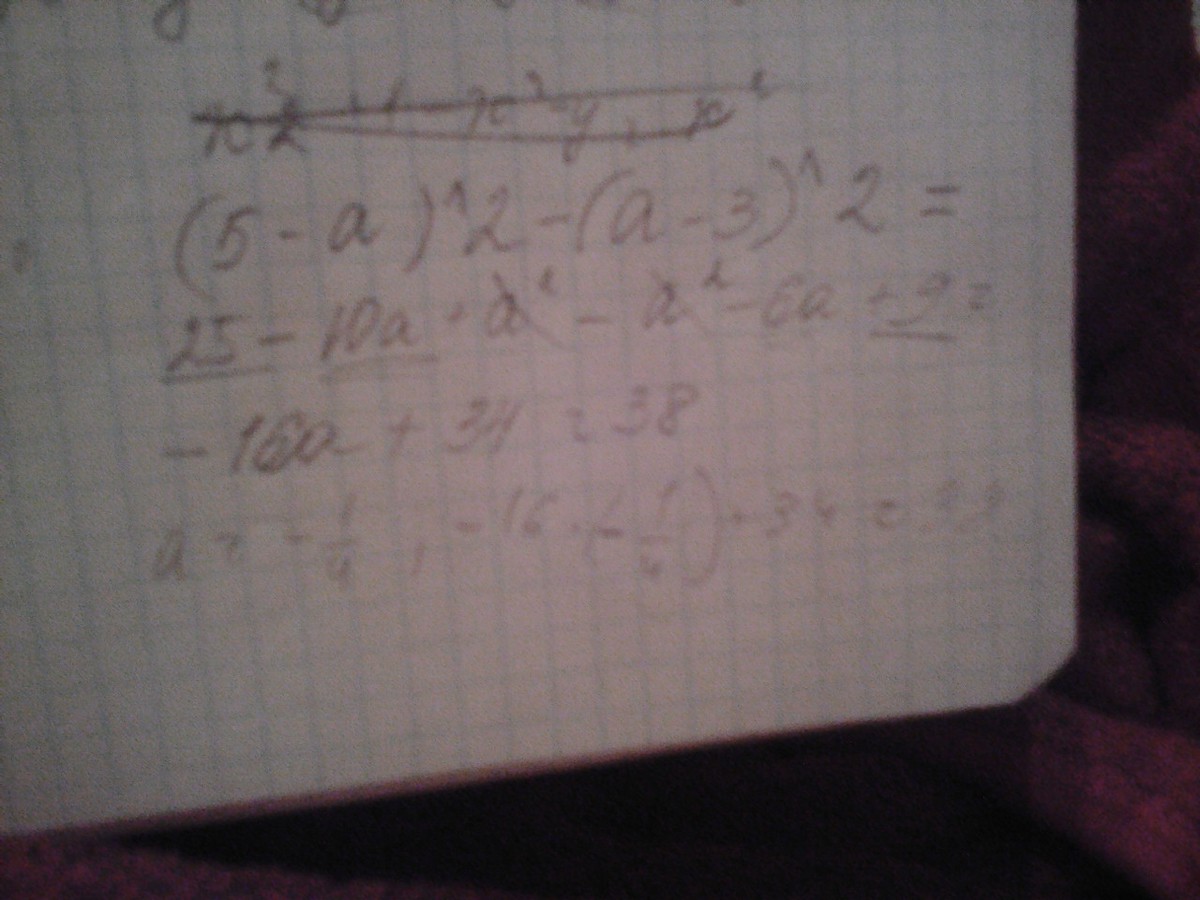 (5 - a)^2 - (a - 3)^2 =
25 - 10a + a² - a² - 6a + 9 =
- 16a + 34 = 38
a = - 1/4 , - 16 · (- 1/4) + 34 = 38